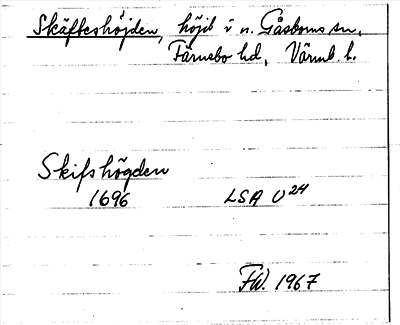 Skäfteshöjden, höjd i n. Gåsborns sn,
Färnebo hd, Värml. l.
Skifshögden
1696 LSA U24
FW. 1967